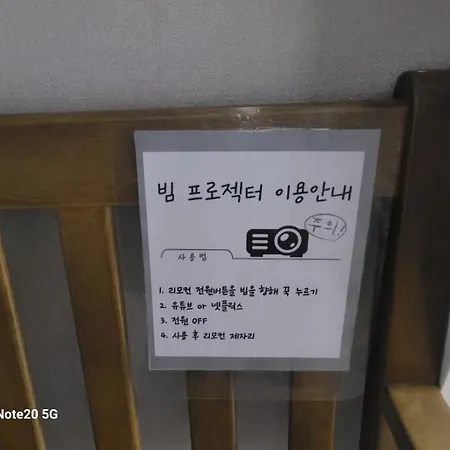 빔 프로젝터 이용안내
주의!
사용법
1. 리모컨 전원버튼을 빔을 향해 꾹 누르기
2. 유튜브 or 넷플릭스
3. 전원 OFF
4. 사용 후 리모컨 제자리
Note20 5G